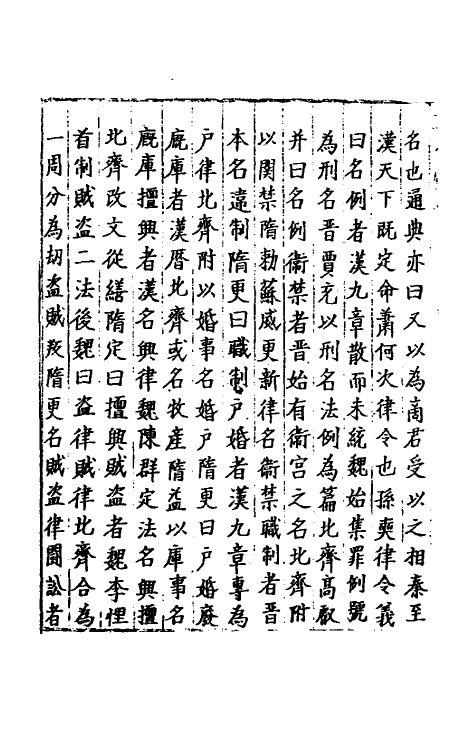 名也通典亦曰又以為商君受以之相秦至
漢天下既定命蕭何次律令也孫奭律令義
曰名例者漢九章散而未統魏始集罪例號
為刑名晉賈充以刑名法例為篇北齊高叡
并曰名例衞禁者晉始有衞宮之名北齊附
以関禁隋勅蘇威更新律名衞禁職制者晉
本名違制隋更曰職制戶婚者漢九章專為
戶律北齊附以婚事名婚戶隋更曰戶婚廏
廐庫者漢曆北齊或名牧產隋益以庫事名
廐庫擅興者漢名興律魏陳群定法名興擅
北齊改文從繕隋定曰擅興賊盜者魏李悝
首制賊盜二法後魏曰盜律賊律北齊合為
一周分為刼盜賊叛隋更名賊盜律鬭訟者